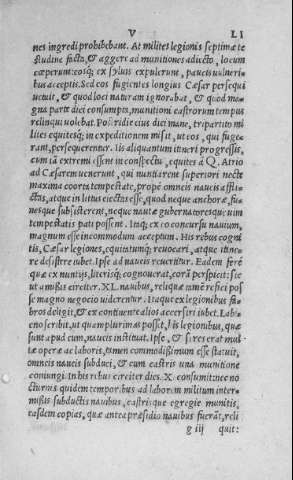 V LI
nes ingredi prohibebant. At milites legionis septimæ te
studine facta, & aggere ad munitiones adiecto, locum
cœperunt: eosq; ex syluis expulerunt, paucis vulneri
bus acceptis. Sed eos fugientes longius Cæsar persequi
vetuit, & quod loci naturam ignorabat, & quod ma
gna parte diei consumpta, munitioni castrorum tempus
relinqui volebat. Postridie eius diei mane, tripartito mi
lites equitesq; in expeditionem misit, ut eos, qui fuge
rant, persequerentur. Iis aliquantum itineri progressis,
cum iã extremi essent in conspectu, equites à Q. Atrio
ad Cæsarem venerunt, qui nuntiarent superiori nocte
maxima coorta tempestate, propè omneis naueis afflic
ctas, atque in litus eiectas esse, quod neque anchoræ, fu
nesque subsisterent, neque nautæ gubernatoresque; uim
tempestatis pati possent. Itaq; ex eo concursu nauium,
magnum esse incommodum acceptum. His rebus cogni
tis, Cæsar legiones, equitatumq; reuocari, atque itine
re desistere iubet. Ipse ad naueis reuertitur. Eadem ferè
quæ ex nuntijs, literisq; cognouerat, corã perspicit: sic
ut amissis circiter. XL. nauibus, reliquæ tamẽ refici pos
se magno negocio viderentur. Itaque ex legionibus fa
bros deligit, & ex continente alios accersiri iubet. Labi
eno scribit, ut quam plurimas posset, iis legionibus, quæ
sunt apud eum, naueis instituat. Ipse, & si res erat mul
tæ operæ ac laboris, tamen commodissimum esse statuit,
omneis naueis subduci, & cum castris una munitione
coniungi. In his rebus circiter dies. X. consumit: nec no
cturnis quidem temporibus ad laborem militum inter
missis. subductis nauibus, castrisque egregie munitis,
easdem copias, quæ antea præsidio nauibus fuerãt, reli
g iij quit: